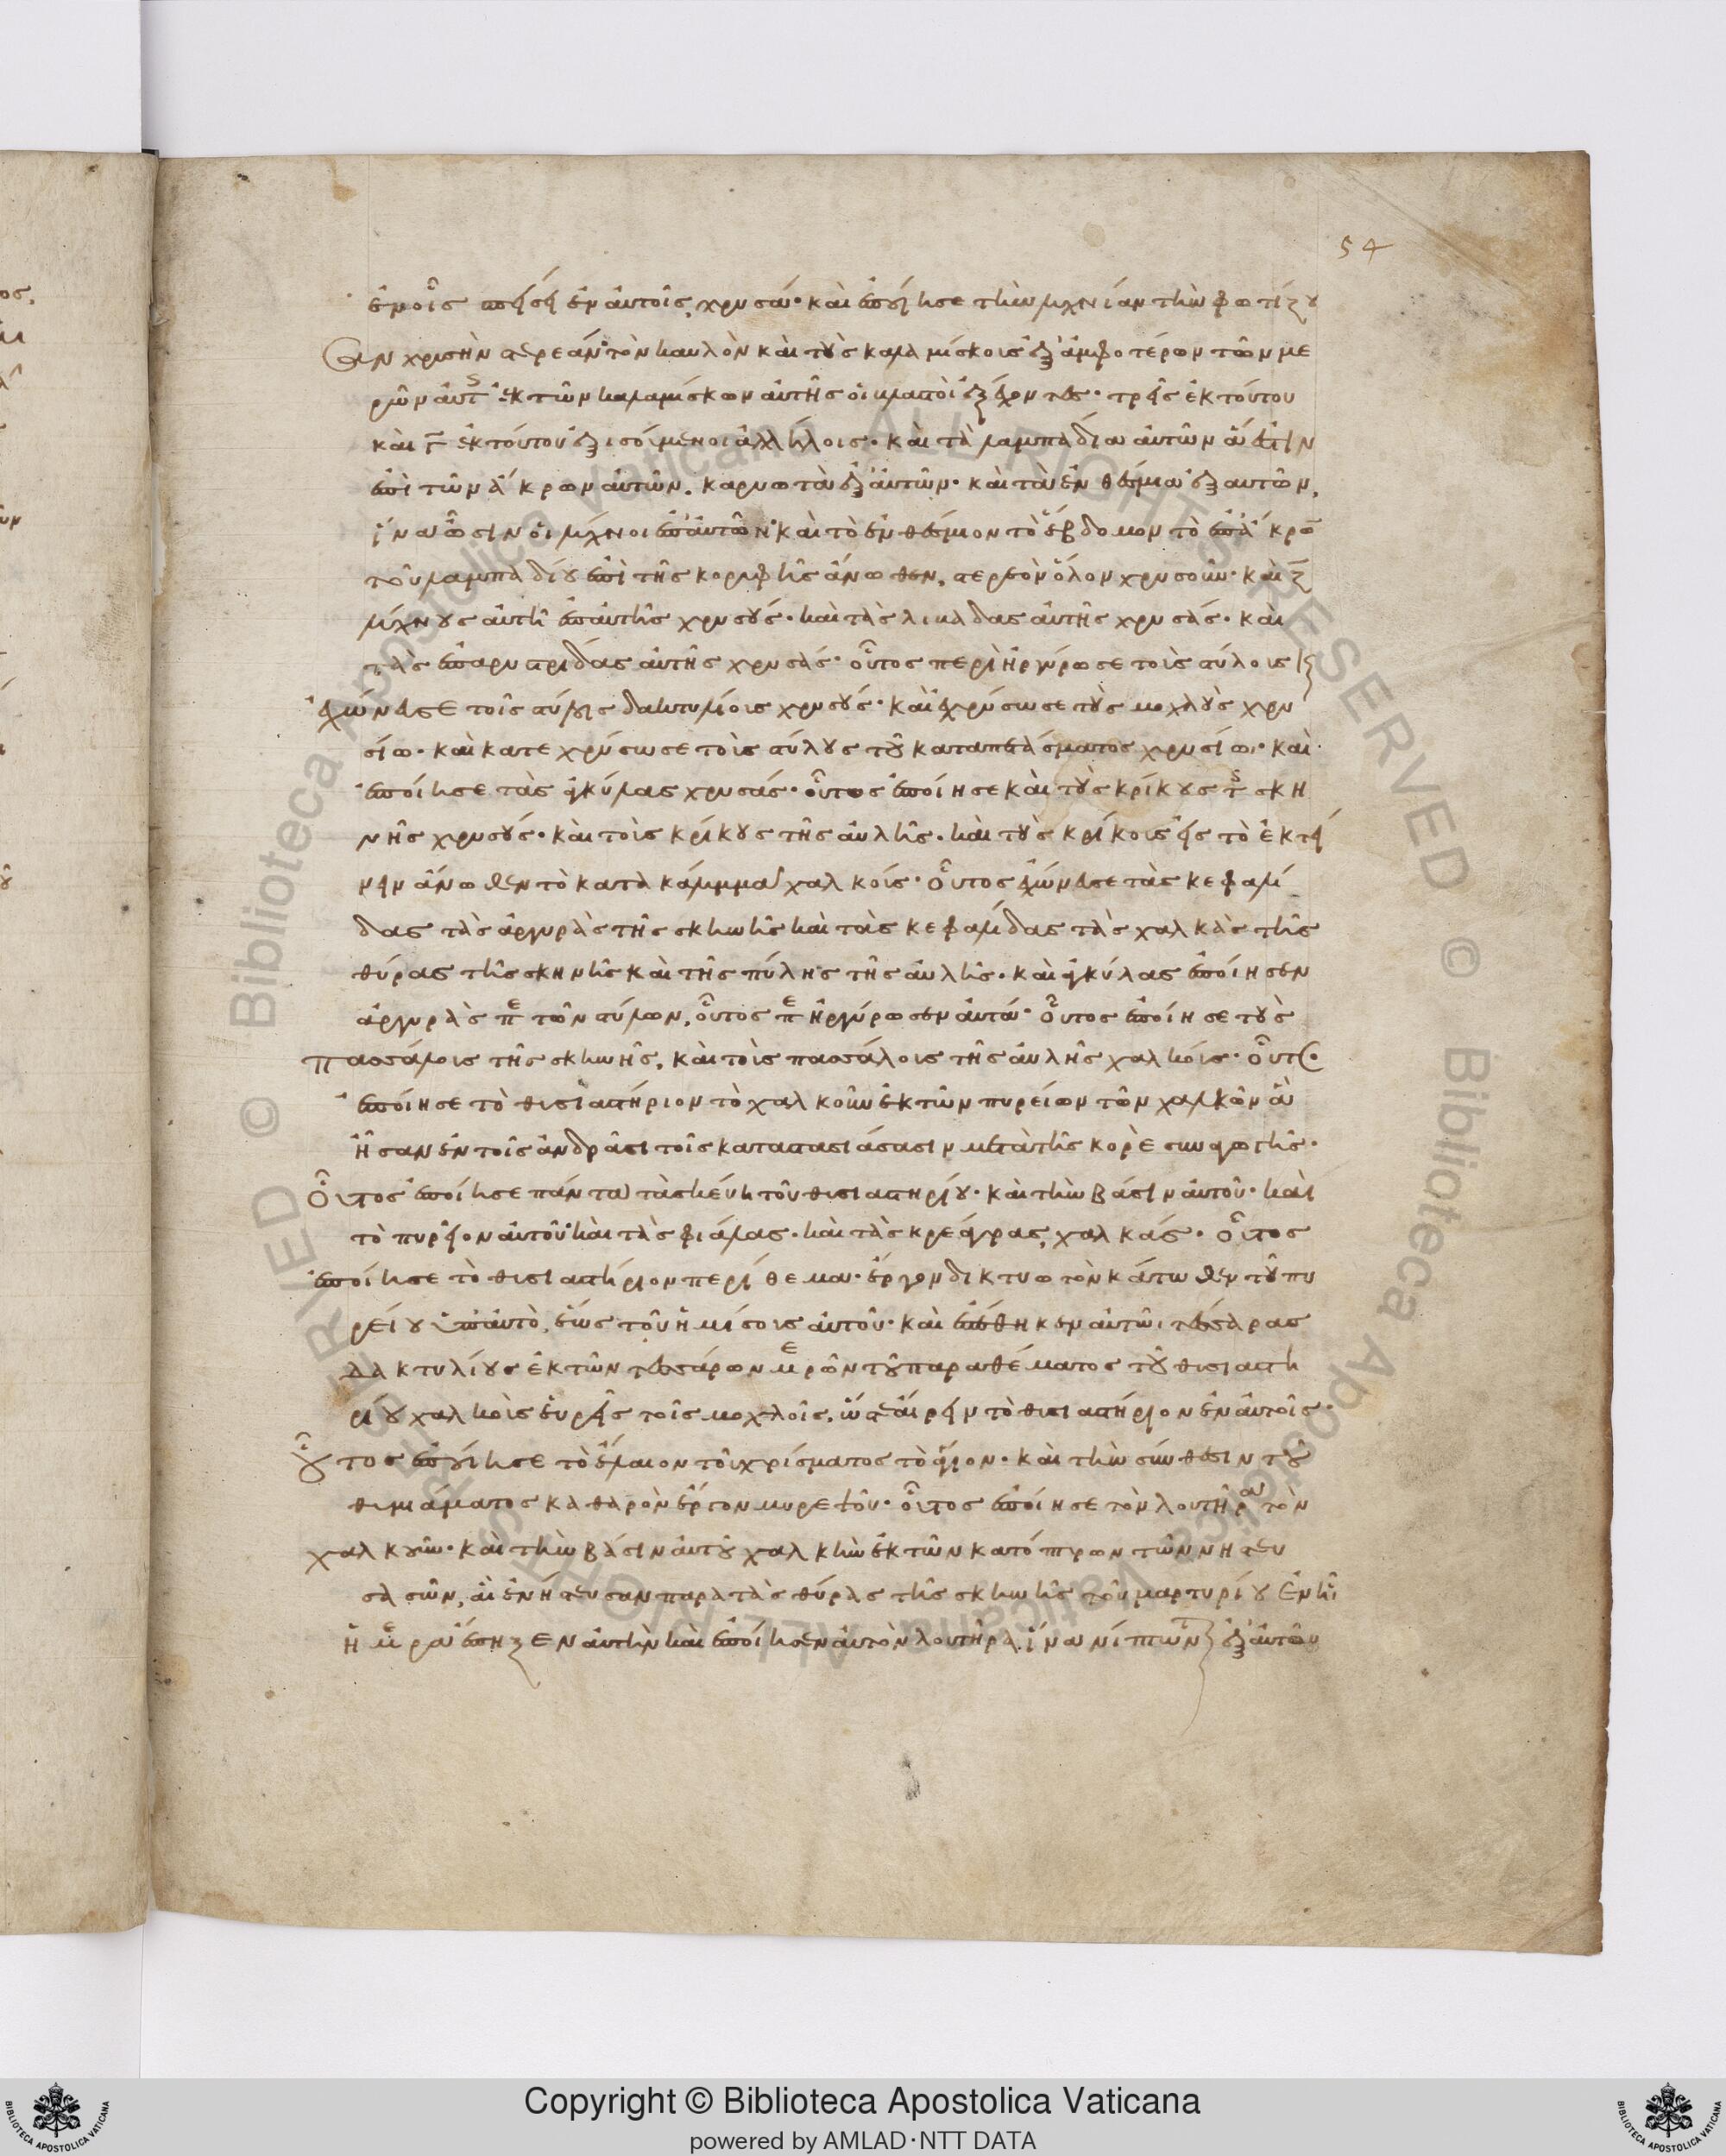 54
ἐν οἷς σπείσει ἐν αὐτοῖς, χρυσᾶ· καὶ ἐποίησε τὴν λυχνίαν τὴν φωτίζου
σαν χρισὴν στερεάν τὸν καυλὸν καὶ τοὺς καλαμίσκοις ἐξ ἀμφοτέρων τῶν με
ρῶν αὐτῆς· ἐκ τῶν καλαμίσκων αὐτῆς οἱ βλαστοὶ ἐξέχοντες· τρεῖς ἐκ τούτου
καὶ γ ἐκ τούτου ἐξισούμενοι ἀλλήλοις· καὶ τὰ λαμπάδια αὐτῶν ἅ ἐστὶν
ἐπὶ τῶν ἄκρων αὐτῶν. καρυωτὰ ἐξ αὐτῶν· καὶ τὰ ἐνθέμια ἐξ αὐτῶν,
ἵνα ὦσιν οἱ λύχνοι ἐπ' αὐτῶν· καὶ τὸ ἐνθέμιον τὸ ἕβδομον τὸ ἐπ' ἄκρου
τοῦ λαμπαδίου ἐπὶ τῆς κορυφῆς ἄνωθεν, στερεὸν ὅλον χρυσοῦν· καὶ ζ
λύχνους αὐτῆ ἐπ' αὐτῆς χρυσούς· καὶ τὰς λαβίδας αὐτῆς χρυσάς· καὶ
τὰς ἐπαρυστρίδας αὐτῆς χρυσάς· οὗτος περιηργύρωσε τοὺς στύλοις καὶ
ἐχώνευσε τοῖς στύλοις δακτυλίοις χρυσούς· καὶ ἐχρύσωσε τοὺς μοχλοὺς χρυ
σίω· καὶ κατεχρύσωσε τοὺς στύλους τοῦ καταπετάσματος χρυσίω· καὶ
ἐποίησε τὰς ἀγκύλας χρυσάς· οὗτος ἐποίησε καὶ τοὺς κρίκους τῆς σκη
νῆς χρυσούς· καὶ τοὺς κρίκους τῆς αὐλῆς· καὶ τοὺς κρίκοις εἰς τὸ ἐκτεί
νειν ἄνωθεν τὸ κατακάλυμμα χαλκοῖς· Οὗτος ἐχώνευσε τὰς κεφαλί
δας τὰς ἀργυρὰς τῆς σκηνῆς καὶ τὰς κεφαλίδας τὰς χαλκὰς τῆς
θύρας τῆς σκηνῆς καὶ τῆς πύλης τῆς αὐλῆς· καὶ ἀγκύλας ἐποίησεν
ἀργυρὰς ἐπὶ τῶν στύλων, οὗτος περιηργύρωσεν αὐτά· Οὗτος ἐποίησε τοὺς
πασσάλοις τῆς σκηνῆς, καὶ τοὺς πασσάλοις τῆς αὐλῆς χαλκοῖς· Οὗτος
ἐποίησε τὸ θυσιαστήριον τὸ χαλκοῦν ἐκ τῶν πυρείων τῶν χαλκῶν ἃ
ἦσαν ἐν τοῖς ἀνδράσι τοῖς καταστασιάσασιν μετὰ τῆς κορὲ συναγωγῆς·
Οὗτος ἐποίησε πάντα τὰ σκεύη τοῦ θυσιαστηρίου· καὶ τὴν βάσιν αὐτοῦ· καὶ
τὸ πυρεῖον αὐτοῦ· καὶ τὰς φιάλας· καὶ τὰς κρεάγρας χαλκάς· οὗτος
ἐποίησε τὸ θυσιαστήριον περίθεμα· ἔργον δικτυωτὸν κάτωθεν τοῦ πυ
ρείου ὑπ' αὐτὸ, ἕως τοῦ ἡμίσους αὐτοῦ· καὶ ἐπέθηκεν αὐτῶι τέσσαρας
δακτυλίους ἐκ τῶν τεσσάρων μερῶν τοῦ παραθέματος τοῦ θυσιαστη
ρίου χαλκοὺς εὐρεῖς τοῖς μοχλοῖς, ὥστε αἴρειν τὸ θυσιαστήριον ἐν αὐτοῖς·
Οὗτος ἐποίησε τὸ ἔλαιον τοῦ χρίσματος τὸ ἅγιον· καὶ τὴν σύνθεσιν τοῦ
θυμιάματος καθαρὸν ἔργον μυρεψοῦ· οὗτος ἐποίησε τὸν λουτῆρα τὸν
χαλκοῦν· καὶ τὴν βάσιν αὐτοῦ χαλκῆν ἐκ τῶν κατόπτρων τῶν νηστευ
σασῶν, αἳ ἐνήστευσαν παρὰ τὰς θύρας τῆς σκηνῆς τοῦ μαρτυρίου ἐν ἧι
ἡμέρα ἔπηξεν αὐτὴν καὶ ἐποίησεν αὐτὸν λουτῆρα, ἵνα νίπτωνται ἐξ αὐτοῦ
Copyright © Biblioteca Apostolica Vaticana
powered by AMLAD·NTT DATA